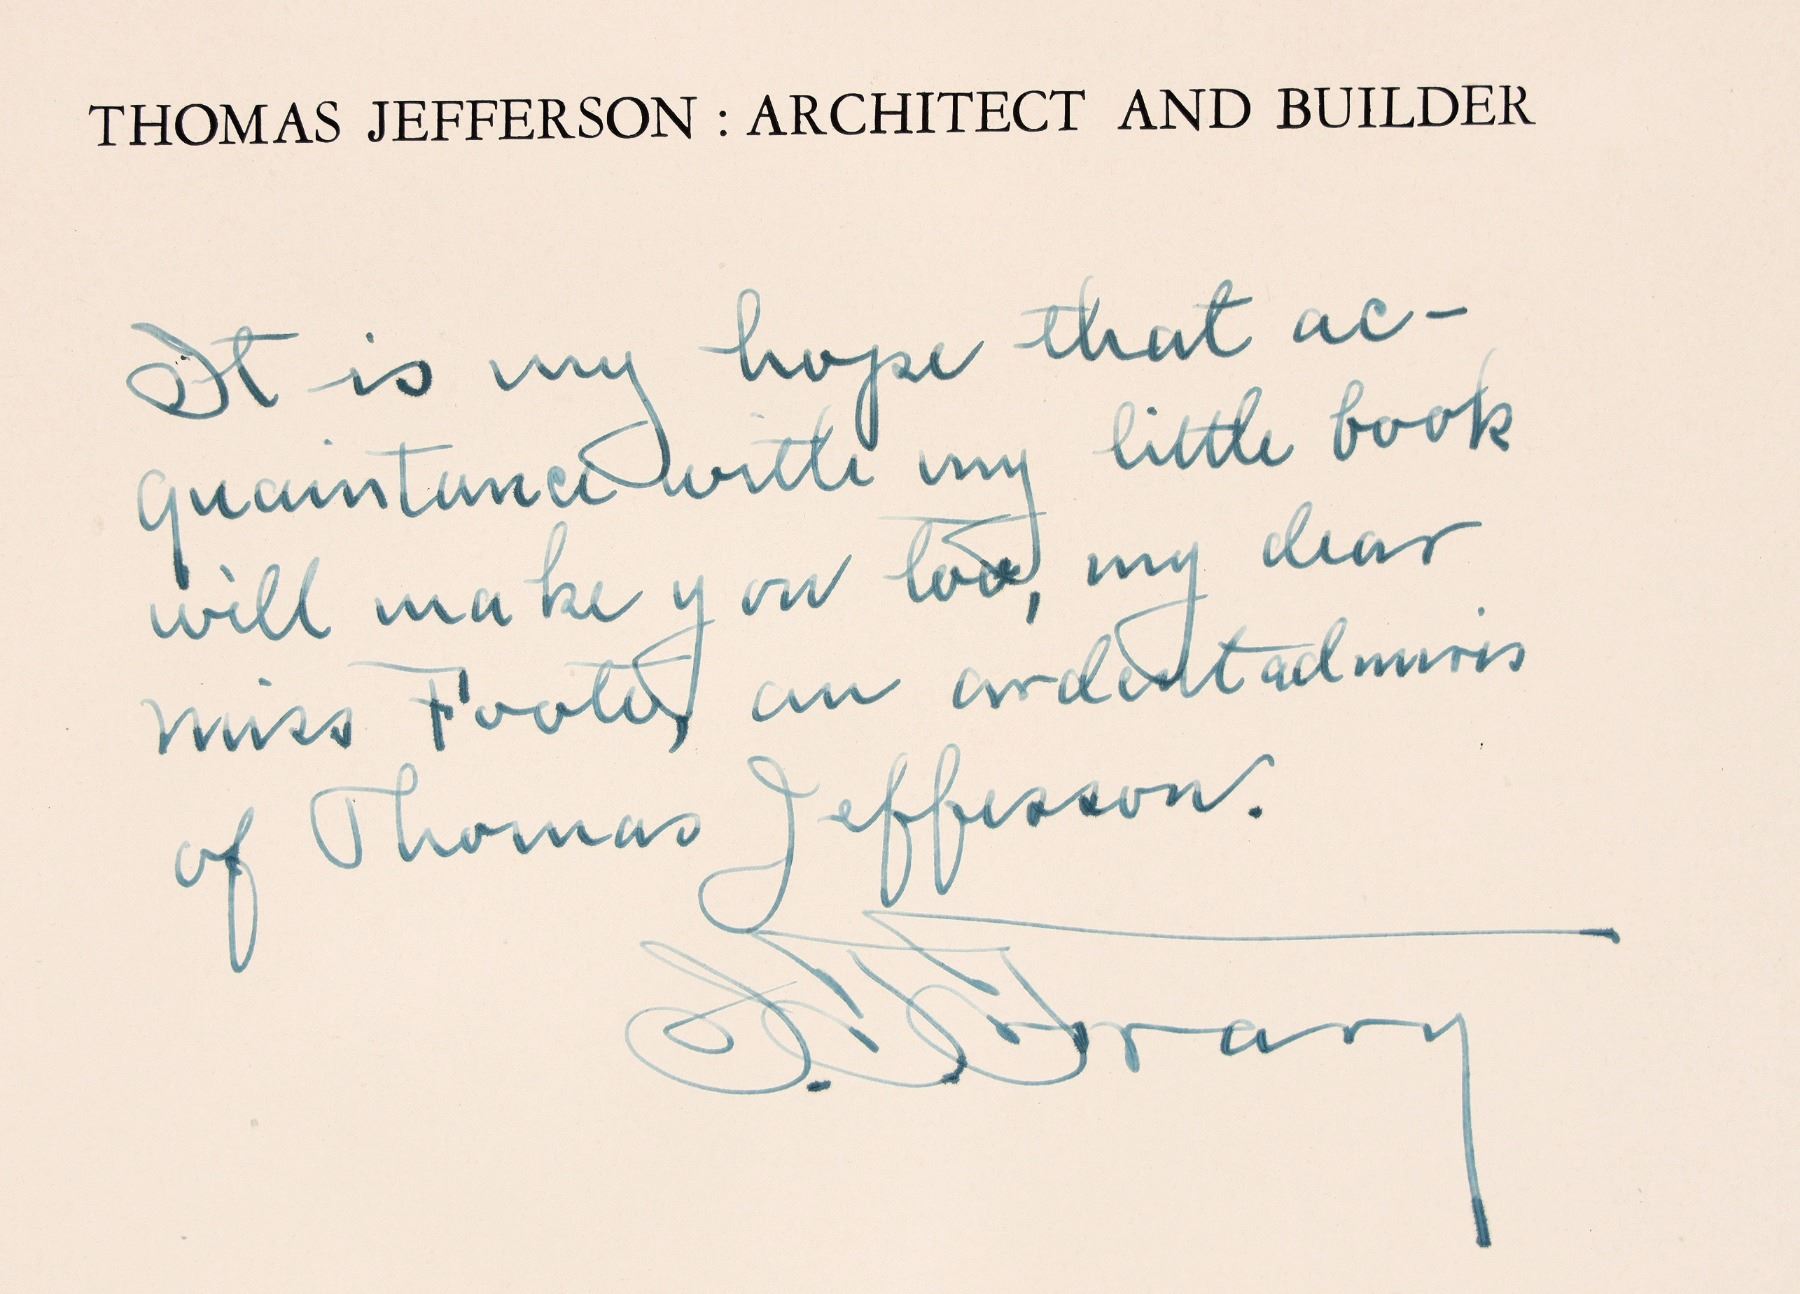 THOMAS JEFFERSON : ARCHITECT AND BUILDER
It is my hope that ac-
quaintance with my little book
will make you too, my dear
Miss Foote, an ardent admirer
of Thomas Jefferson.
I. T. Frary